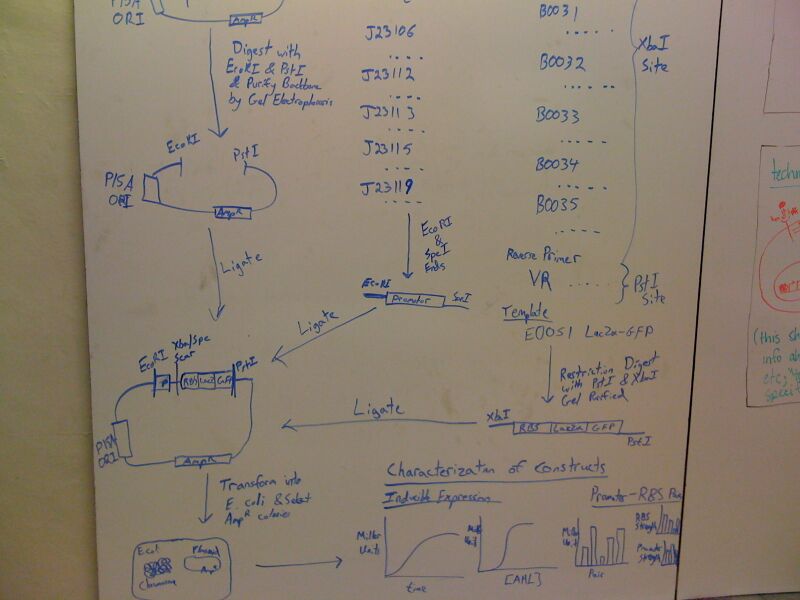 P15A
ORI
AmpR
Digest with
EcoRI & PstI
& Purify Backbone
by Gel Electrophoresis
EcoRI
PstI
P15A
ORI
AmpR
Ligate
J23106
J23112
J23113
J23115
J23119
EcoRI
&
SpeI
Ends
EcoRI
promotor
SpeI
Ligate
B0031
B0032
B0033
B0034
B0035
XbaI
Site
Reverse Primer
VR
PstI
Site
Template
E0051 LacZα-GFP
Restriction Digest
with PstI & XbaI
Gel Purified
XbaI
RBS LacZα GFP
PstI
Ligate
EcoRI
Xba/Spe
Scar
PstI
P
RBS LacZ GFP
P15A
ORI
AmpR
Transform into
E. coli & Select
AmpR colonies
Plasmid
AmpR
Characterization of Constructs
Inducible Expression
Promotor-RBS
Miller
Units
time
[AHL]
Miller
Units
Pair
RBS
Strength
Promotor
Strength
techn
(this sh
info ab
etc,